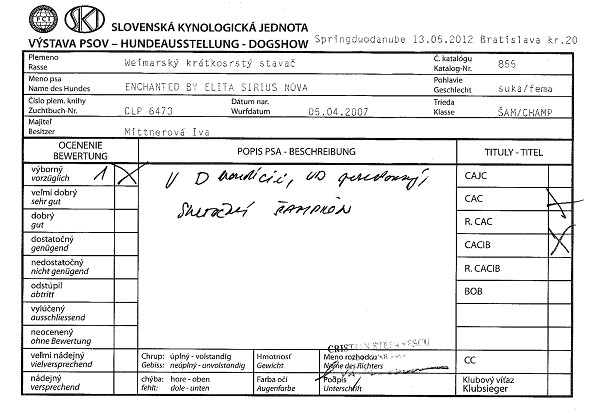 FCI SKJ SLOVENSKÁ KYNOLOGICKÁ JEDNOTA
VÝSTAVA PSOV – HUNDEAUSSTELLUNG - DOGSHOW Springduodanube 13.05.2012 Bratislava kr.20
Plemeno
Rasse Weimarský krátkosrstý stavač Č. katalógu
Katalog-Nr. 855
Meno psa
Name des Hundes ENCHANTED BY ELITA SIRIUS NOVA Pohlavie
Geschlecht suka/fema
Číslo plem. knihy
Zuchtbuch-Nr. CLP 6473 Dátum nar.
Wurfdatum 05.04.2007 Trieda
Klasse ŠAM/CHAMP
Majiteľ
Besitzer Mittnerová Iva
OCENENIE
BEWERTUNG
POPIS PSA - BESCHREIBUNG
TITULY - TITEL
výborný
vorzüglich 1 X
veľmi dobrý
sehr gut
dobrý
gut
dostatočný
genügend
nedostatočný
nicht genügend
odstúpil
abtritt
vylúčený
ausschliessend
neocenený
ohne Bewertung
veľmi nádejný
vielversprechend
nádejný
versprechend
V D kondícii, VD
ŠAMPIÓN
CAJC
CAC X
R. CAC
CACIB X
R. CACIB
BOB
CC
Klubový víťaz
Klubsieger
Chrup: úplný - volstandig
Gebiss: neúplný - unvolstandig
Hmotnosť
Gewicht
Meno rozhodcu
Name des Richters
chýba: hore - oben
fehlt: dole - unten
Farba očí
Augenfarbe
Podpis
Unterschrift